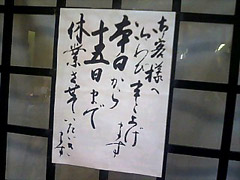 お客様へ
お知らせ申し上げ
ます
本日から
十五日まで
休業させていただき
ます